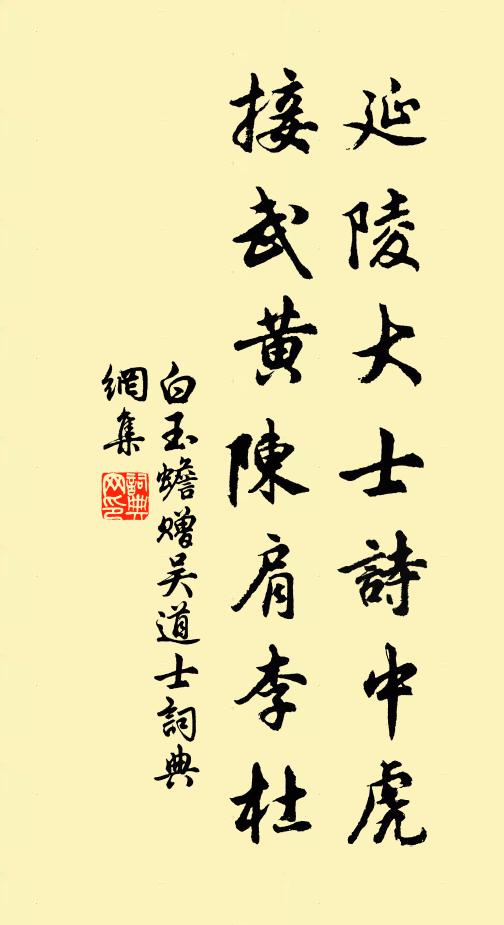 延陵大士詩中虎
接武黃陳肩李杜
白玉蟾贈吴道士詞典
網集
詞典網印